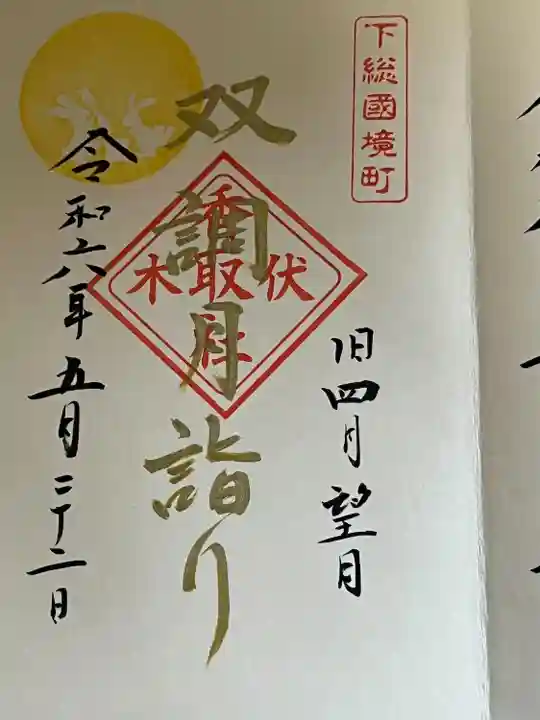 下総國境町
旧四月望月
双調月詣り
香取
伏木
社
令和六年五月二十二日